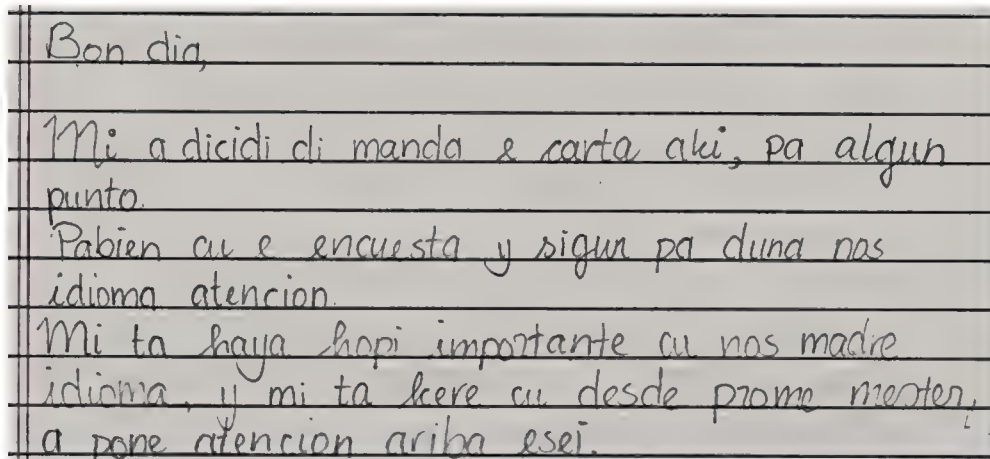 Bon dia,
Mi a dicidi di manda e carta aki, pa algun
punto.
Pabien cu e encuesta y sigur pa duna nos
idioma atencion.
Mi ta haya hopi importante cu nos madre
idioma, y mi ta kere cu desde promo mester,
a pone atencion ariba esei.